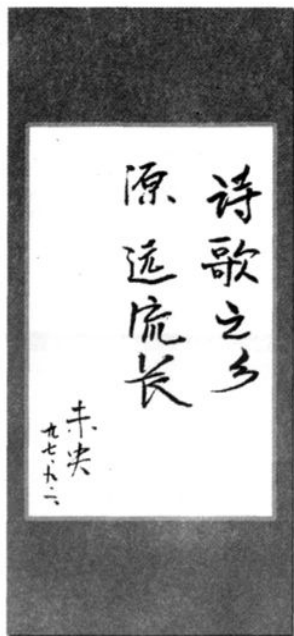 诗歌之乡
源远流长
未央
九七·九·二